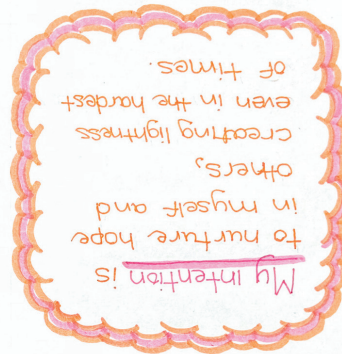 My intention is
to nurture hope
in myself and
others,
creating lightness
even in the hardest
of times.